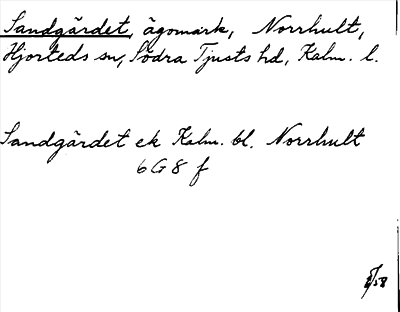 Sandgärdet, ägomark, Norrhult,
Hjorteds sn, Södra Tjusts hd, Kalm. l.
Sandgärdet ek Kalm. bl. Norrhult
6G8 f